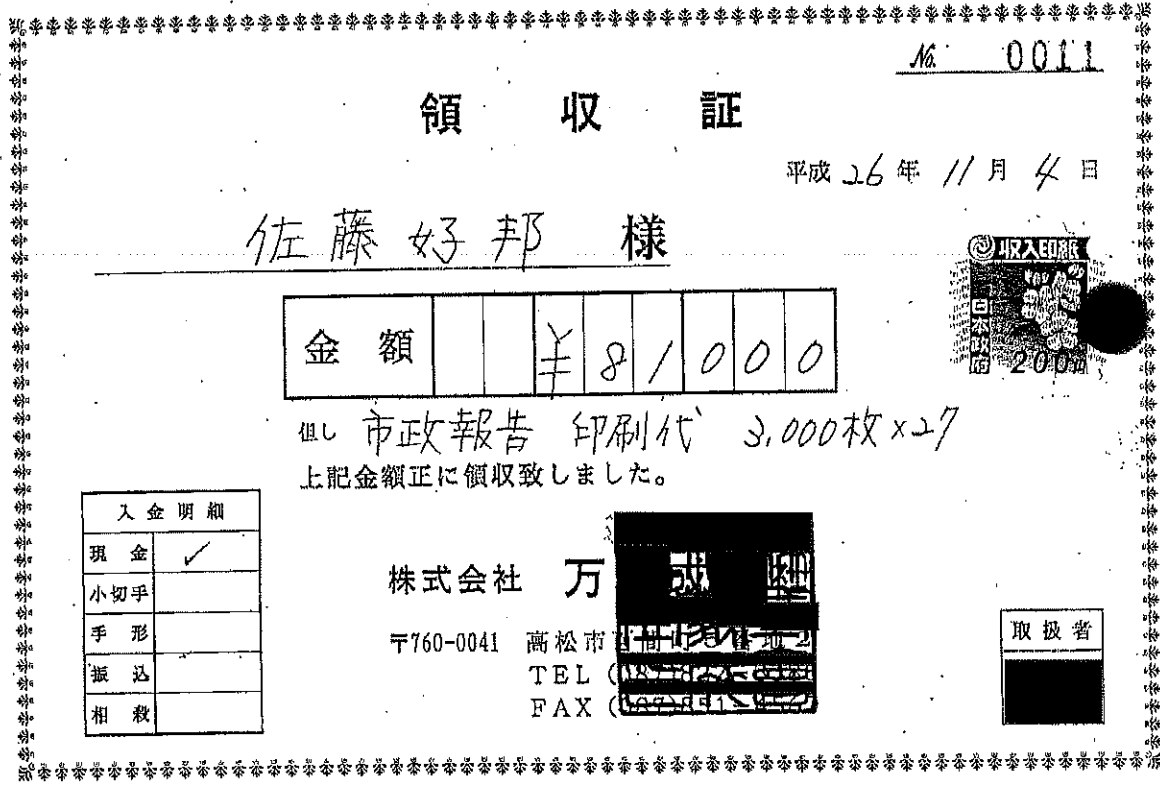 No. 0011
領収証
平成 26 年 11 月 4 日
佐藤好邦 様
収入印紙
日本政府
200円
金額 ¥81000
但し 市政報告 印刷代 3,000枚×27
上記金額正に領収致しました。
入金明細
現金 ✓
小切手
手形
振込
相殺
株式会社 万成
〒760-0041 高松市
TEL
FAX
取扱者